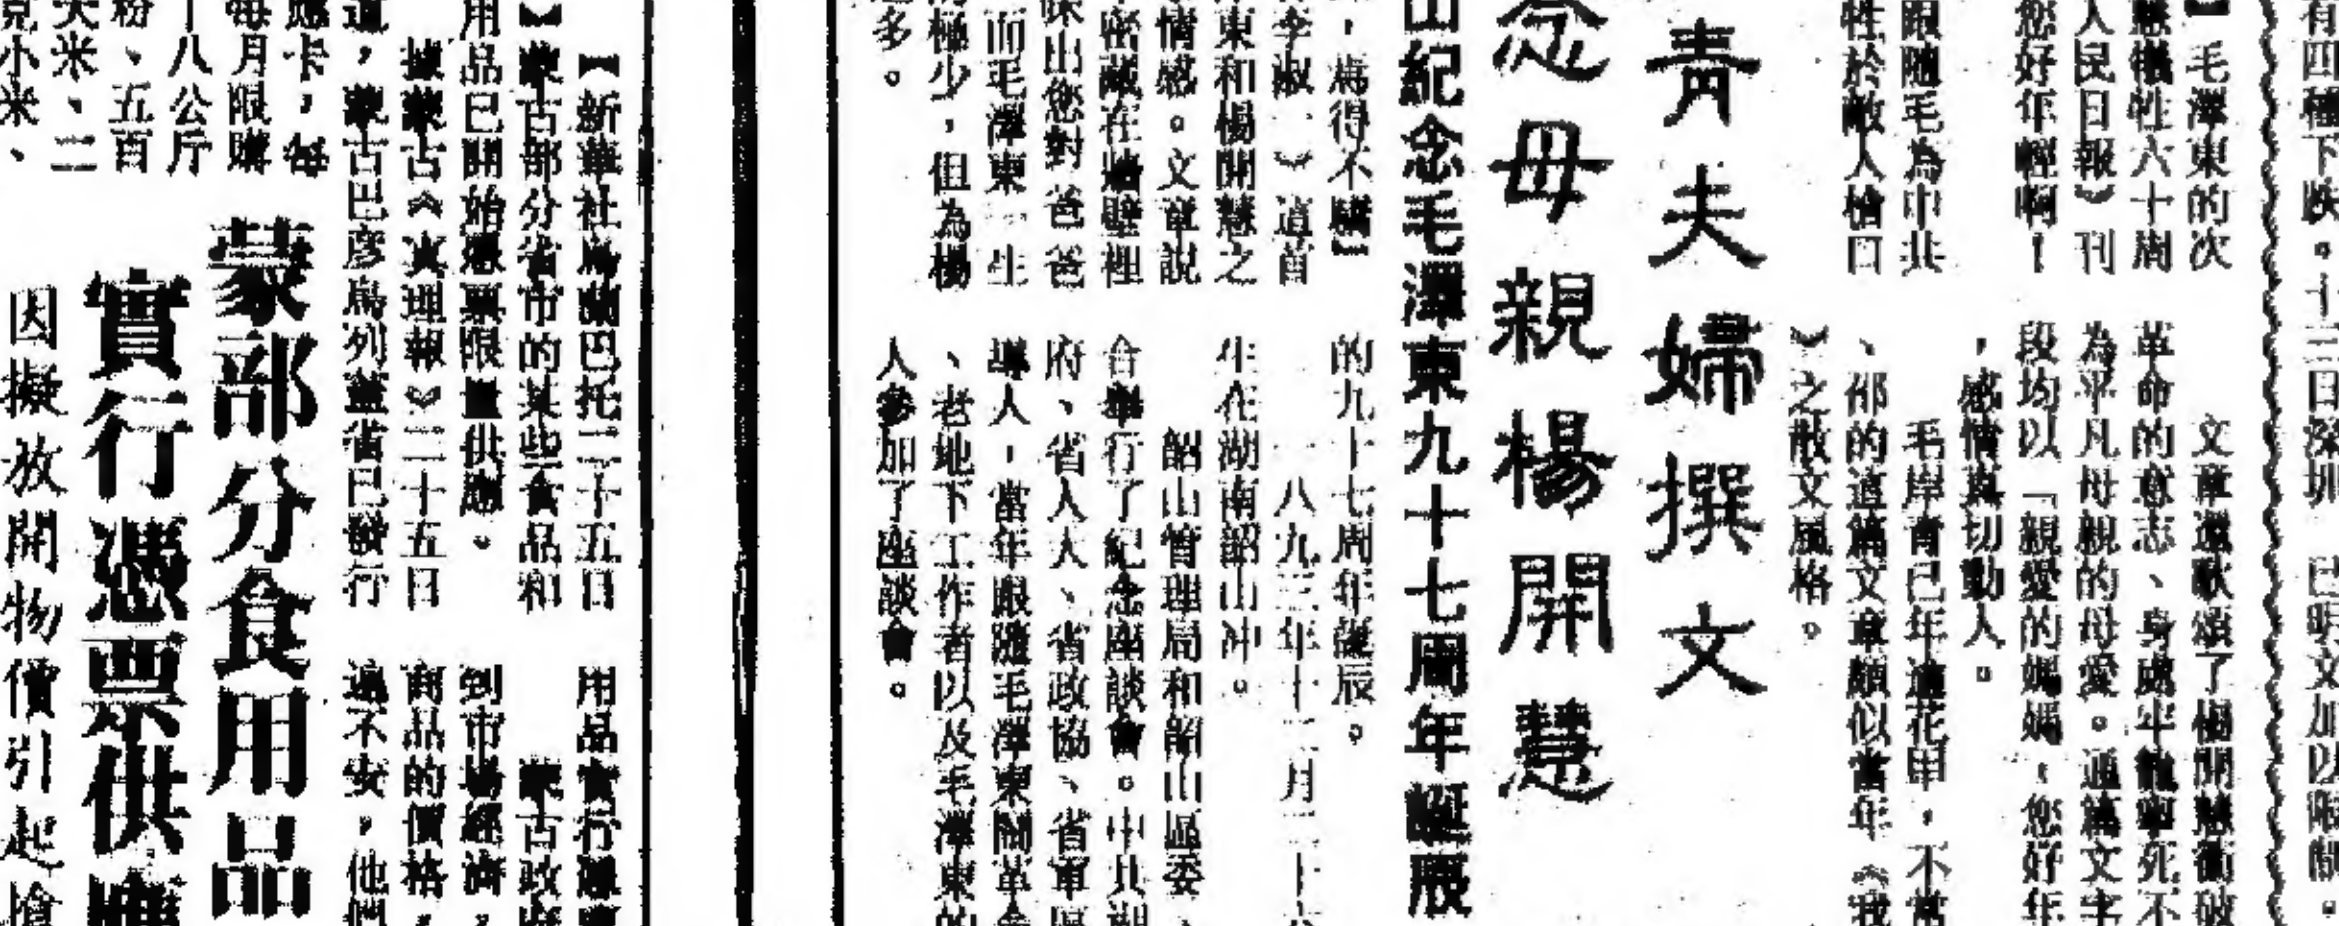 有四種下跌。十三日深圳
已明文加以限制。
】毛澤東的次
慧犧牲六十周
人民日報》刊
您好年輕啊！
跟隨毛為中共
牲於敵人槍口
文章還歌頌了楊開慧衝破
革命的意志、身處牢籠寧死不
為平凡母親的母愛。通篇文字
段均以「親愛的媽媽，您好年
，感情真切動人。
毛岸青已年過花甲，不常
、邵的這篇文章頗似當年《我
》之散文風格。
青夫婦撰文
念母親楊開慧
山紀念毛澤東九十七周年誕辰
，為得不驕】
李淑一》這首
東和楊開慧之
情感。文章說
密藏在牆壁裡
出您對爸爸
而毛澤東一生
極少，但為楊
多。
的九十七周年誕辰。
一八九三年十二月二十六
生在湖南韶山沖。
韶山管理局和韶山區委、
合舉行了紀念座談會。中共湖
府、省人大、省政協、省軍區
導人，當年跟隨毛澤東鬧革命
、老地下工作者以及毛澤東的
人參加了座談會。
【新華社烏蘭巴托二十五日
】蒙古部分省市的某些食品和
用品已開始憑票限量供應。
據蒙古《真理報》二十五日
道，蒙古巴彥烏列蓋省已發行
應卡，每
每月限購
十八公斤
粉、五百
大米、二
克小米、
用品實行憑票
蒙古政府
到市場經濟，
商品的價格，
遍不安，他們
蒙部分食用品
實行憑票供應
因擬放開物價引起搶